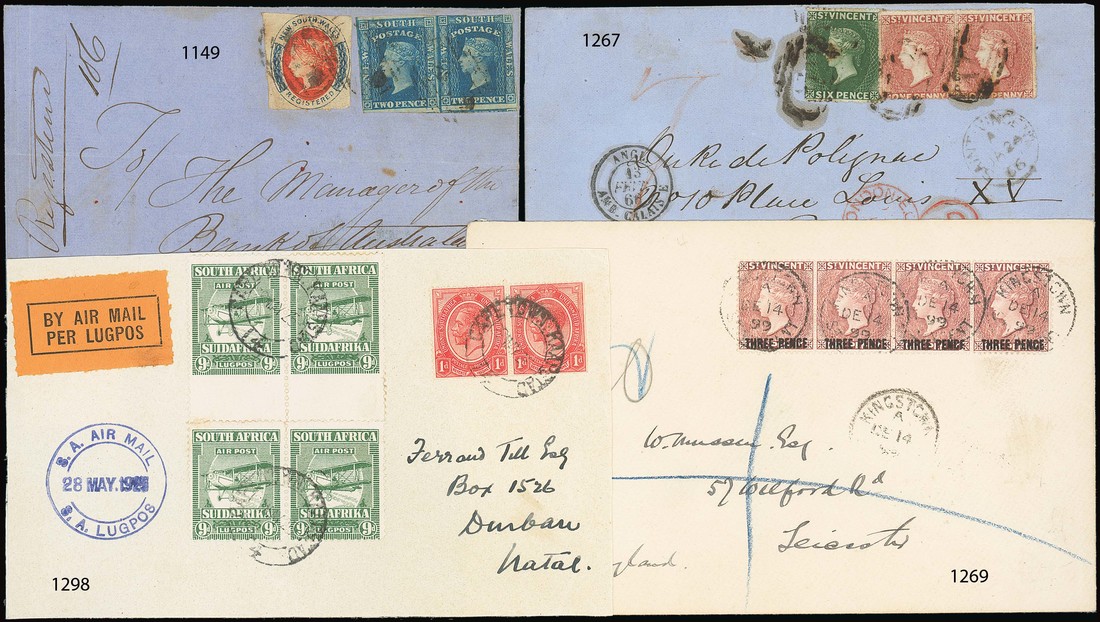 1149
Registered
106
NEW SOUTH WALES
REGISTERED
SOUTH
POSTAGE
NEW
WALES
TWO PENCE
SOUTH
POSTAGE
NEW
WALES
TWO PENCE
To/
The Manager of the
Bank of Australa
1267
ST VINCENT
SIX PENCE
ST VINCENT
ONE PENNY
ST VINCENT
PENNY
7
ANGL
13
FEVR
66
AMB. CALAIS
24
66
LONDON
Duke de Polignac
Place Louis XV
BY AIR MAIL
PER LUGPOS
S. A. AIR MAIL
28 MAY.
S. A. LUGPOS
SOUTH AFRICA
AIR POST
SUIDAFRIKA
9d LUGPOST 9d
SOUTH AFRICA
AIR POST
SUIDAFRIKA
9d LUGPOST 9d
SOUTH AFRICA
AIR POST
SUIDAFRIKA
9d LUGPOST 9d
SOUTH AFRICA
AIR POST
SUIDAFRIKA
9d LUGPOST 9d
1d 1d
1d 1d
CAPE TOWN KAAPSTAD
Ferrand Till Esq
Box 1526
Durban
Natal.
1298
ST VINCENT
THREE PENCE
ST VINCENT
THREE PENCE
ST VINCENT
THREE PENCE
ST VINCENT
THREE PENCE
KINGSTOWN
A
DE 14
99
KINGSTOWN
A
DE 14
W. Esq.
57 Wilford Rd
Leicester
gland.
1269